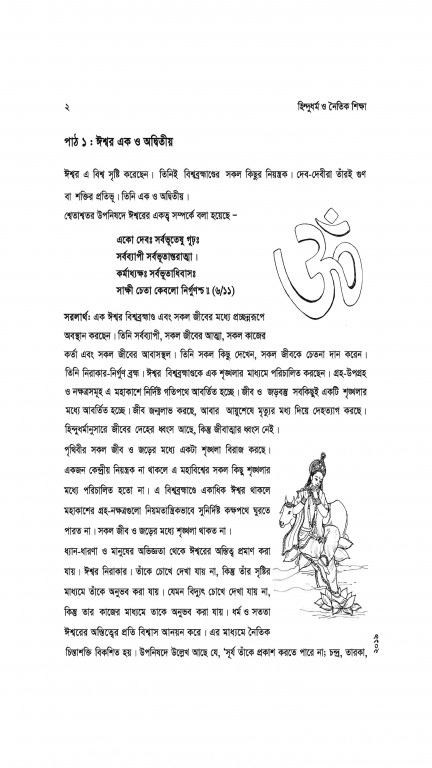 ২
হিন্দুধর্ম ও নৈতিক শিক্ষা
পাঠ ১ : ঈশ্বর এক ও অদ্বিতীয়
ঈশ্বর এ বিশ্ব সৃষ্টি করেছেন। তিনিই বিশ্বব্রহ্মাণ্ডের সকল কিছুর নিয়ন্ত্রক। দেব-দেবীরা তাঁরই গুণ
বা শক্তির প্রতিভূ। তিনি এক ও অদ্বিতীয়।
শ্বেতাশ্বতর উপনিষদে ঈশ্বরের একত্ব সম্পর্কে বলা হয়েছে –
একো দেবঃ সর্বভূতেষু গূঢ়ঃ
সর্বব্যাপী সর্বভূতান্তরাত্মা।
কর্মাধ্যক্ষঃ সর্বভূতাধিবাসঃ
সাক্ষী চেতা কেবলো নির্গুণশ্চ॥ (৬/১১)
সরলার্থ: এক ঈশ্বর বিশ্বব্রহ্মাণ্ড এবং সকল জীবের মধ্যে প্রচ্ছন্নরূপে
অবস্থান করছেন। তিনি সর্বব্যাপী, সকল জীবের আত্মা, সকল কাজের
কর্তা এবং সকল জীবের আবাসস্থল। তিনি সকল কিছু দেখেন, সকল জীবকে চেতনা দান করেন।
তিনি নিরাকার-নির্গুণ ব্রহ্ম। ঈশ্বর বিশ্বব্রহ্মাণ্ডকে এক শৃঙ্খলার মাধ্যমে পরিচালিত করছেন। গ্রহ-উপগ্রহ
ও নক্ষত্রসমূহ এ মহাকাশে নির্দিষ্ট গতিপথে আবর্তিত হচ্ছে। জীব ও জড়বস্তু সবকিছুই একটি শৃঙ্খলার
মধ্যে আবর্তিত হচ্ছে। জীব জন্মলাভ করছে, আবার আয়ুশেষে মৃত্যুর মধ্য দিয়ে দেহত্যাগ করছে।
হিন্দুধর্মানুসারে জীবের দেহের ধ্বংস আছে, কিন্তু জীবাত্মার ধ্বংস নেই।
পৃথিবীর সকল জীব ও জড়ের মধ্যে একটা শৃঙ্খলা বিরাজ করছে।
একজন কেন্দ্রীয় নিয়ন্ত্রক না থাকলে এ মহাবিশ্বের সকল কিছু শৃঙ্খলার
মধ্যে পরিচালিত হতো না। এ বিশ্বব্রহ্মাণ্ডে একাধিক ঈশ্বর থাকলে
মহাকাশের গ্রহ-নক্ষত্রগুলো নিয়মতান্ত্রিকভাবে সুনির্দিষ্ট কক্ষপথে ঘুরতে
পারত না। সকল জীব ও জড়ের মধ্যে শৃঙ্খলা থাকত না।
ধ্যান-ধারণা ও মানুষের অভিজ্ঞতা থেকে ঈশ্বরের অস্তিত্ব প্রমাণ করা
যায়। ঈশ্বর নিরাকার। তাঁকে চোখে দেখা যায় না, কিন্তু তাঁর সৃষ্টির
মাধ্যমে তাঁকে অনুভব করা যায়। যেমন বিদ্যুৎ চোখে দেখা যায় না,
কিন্তু তার কাজের মাধ্যমে তাকে অনুভব করা যায়। ধর্ম ও সততা
ঈশ্বরের অস্তিত্বের প্রতি বিশ্বাস আনয়ন করে। এর মাধ্যমে নৈতিক
চিন্তাশক্তি বিকশিত হয়। উপনিষদে উল্লেখ আছে যে, ‘সূর্য তাঁকে প্রকাশ করতে পারে না; চন্দ্র, তারকা,
ওঁ